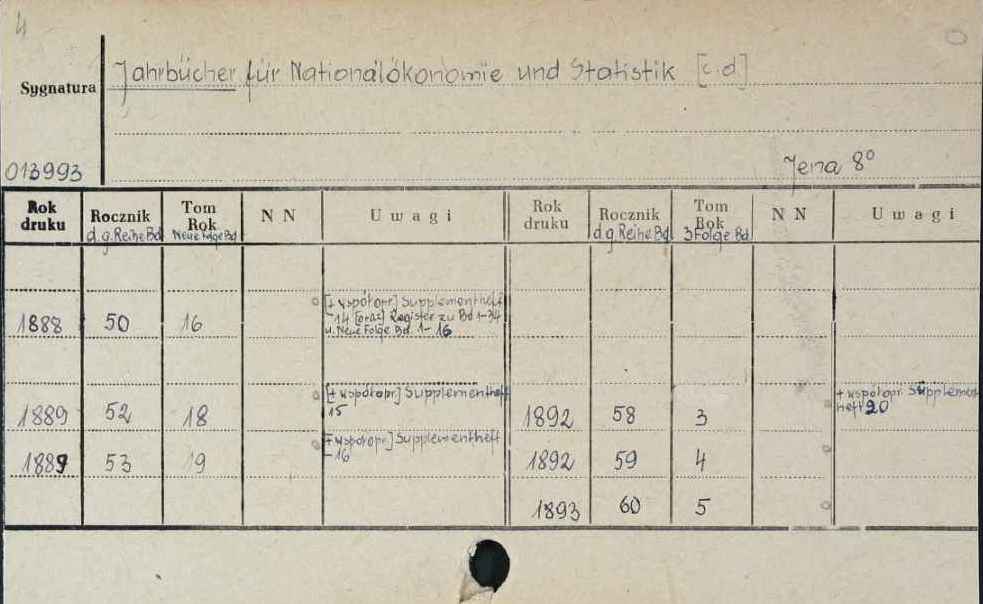 4
Jahrbücher für Nationalökonomie und Statistik [c.d]
Sygnatura
013993
Jena 8°
Rok druku Rocznik d.g.Reihe Bd Tom Rok Neue Folge Bd N N Uwagi Rok druku Rocznik d.g.Reihe Bd Tom Rok 3 Folge Bd N N Uwagi
1888 50 16 [+ współopr.] Supplementheft
14 [oraz] Register zu Bd 1-34
u. Neue Folge Bd. 1-16
1889 52 18 [+ współopr.] Supplementheft
15
1892 58 3 + współopr. Supplement
heft 20
1889 53 19 [+ współopr.] Supplementheft
16
1892 59 4
1893 60 5